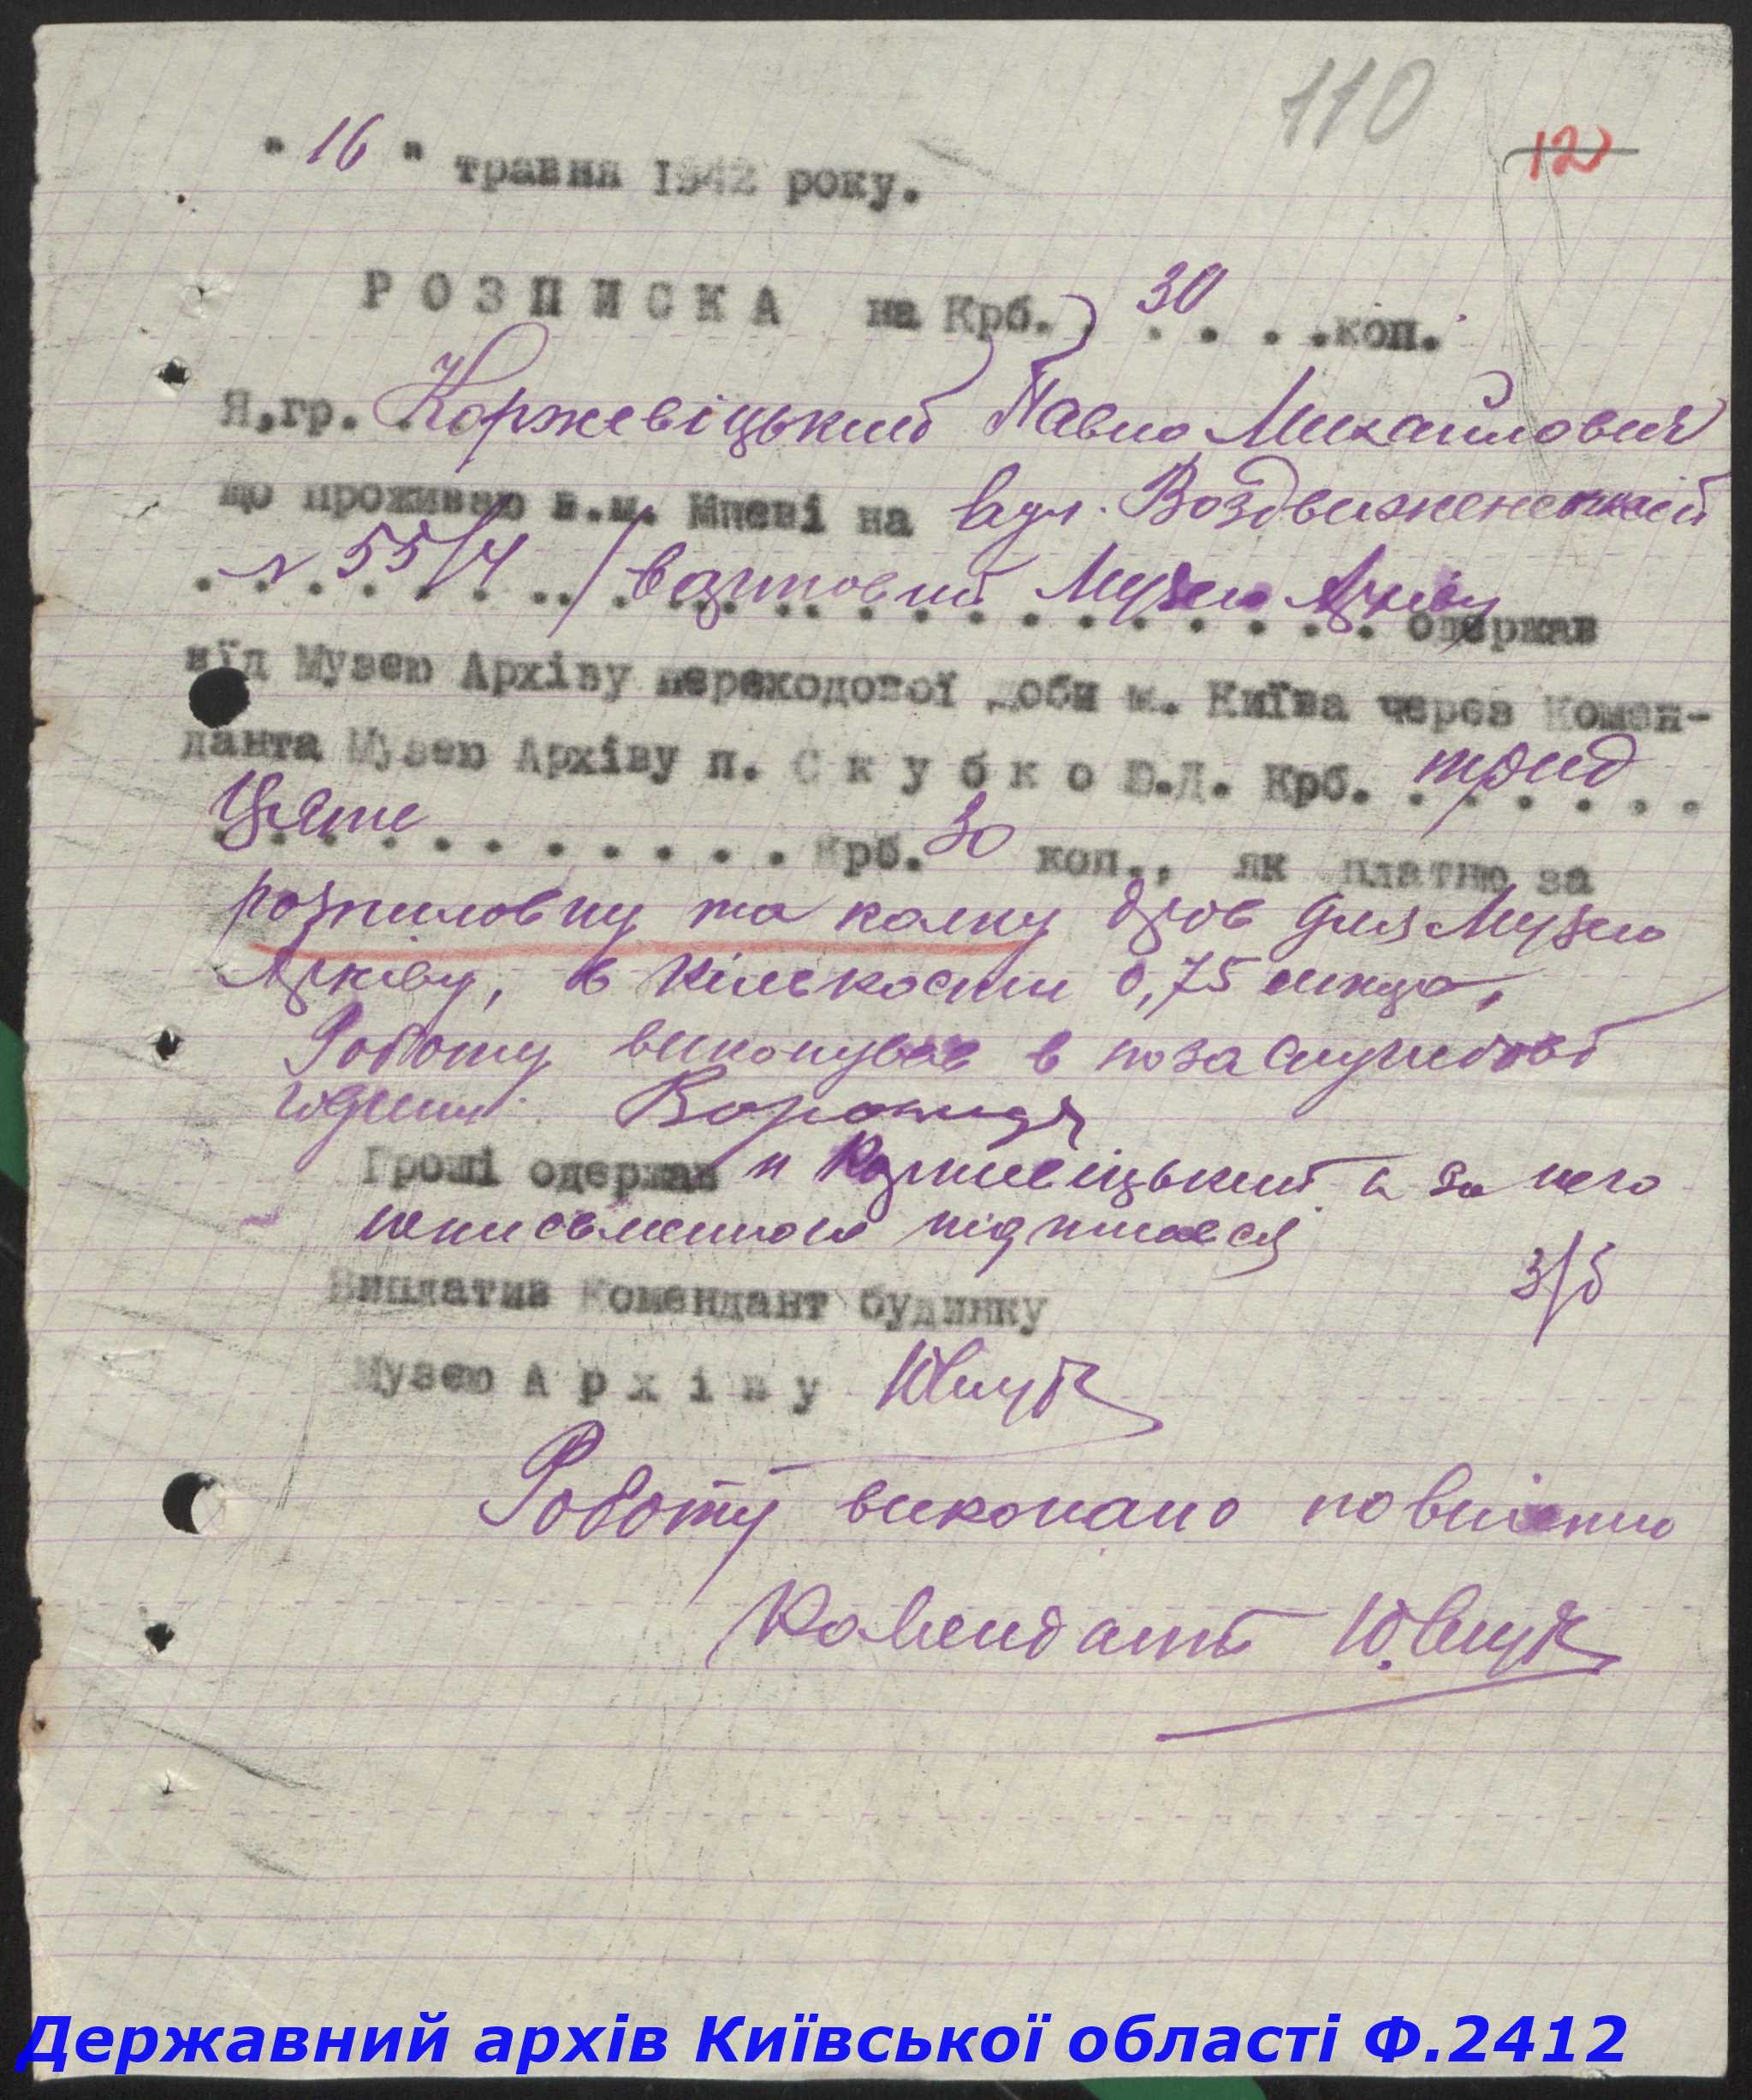 110
12
" 16 " травня 1942 року.
Р О З П И С К А на Крб. . 30 . . . .коп.
Я,гр. Коржевіцький Павло Михайлович
що проживаю в.м. Києві на вул. Воздвиженській
№ 55/4 / вартовий Музею Архіву одержав
від Музею Архіву переходової доби м. Київа через Комен-
данта Музею Архіву п. С к у б к о Ю.Д. Крб. трид
цять . . . . . . . . . . . Крб. 30 коп., як платню за
розпиловку та колку дров для Музею
Архіву, в кількости 0,75
Роботу виконував в позаслужбові
години.
Гроші одержав п Коржевіцький а за него
неписьменного підписався
3/5
Виплатив Комендант будинку
Музею А р х і в у
Роботу виконано повністю
Комендант
Державний архів Київської області Ф.2412